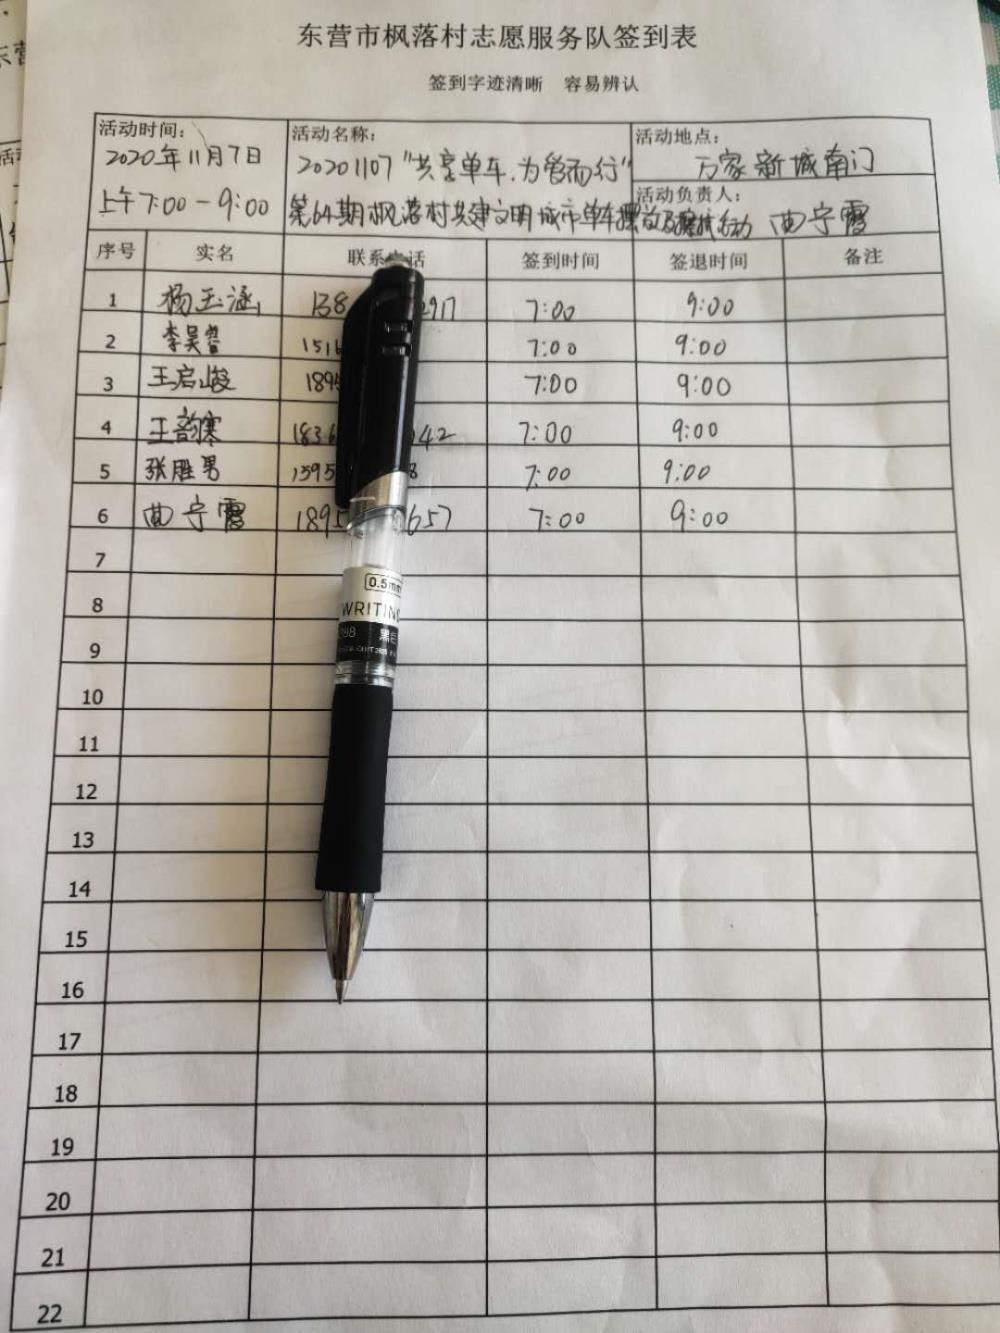 东营市枫落村志愿服务队签到表
签到字迹清晰 容易辨认
活动时间:
2020年11月7日
上午7:00-9:00
活动名称:
20201107"共享单车,为营而行"
第64期枫落村共建文明城市单车摆放及擦拭活动
活动地点:
万家新城南门
活动负责人:
曲宁霞
序号 实名 联系电话 签到时间 签退时间 备注
1 杨玉涵 138 297 7:00 9:00
2 李昊 1516 7:00 9:00
3 王启峻 1895 7:00 9:00
4 王韵寒 1836 42 7:00 9:00
5 张胜男 1595 8 7:00 9:00
6 曲宁霞 1895 657 7:00 9:00
7
8
9
10
11
12
13
14
15
16
17
18
19
20
21
22
0.5mm
WRITING